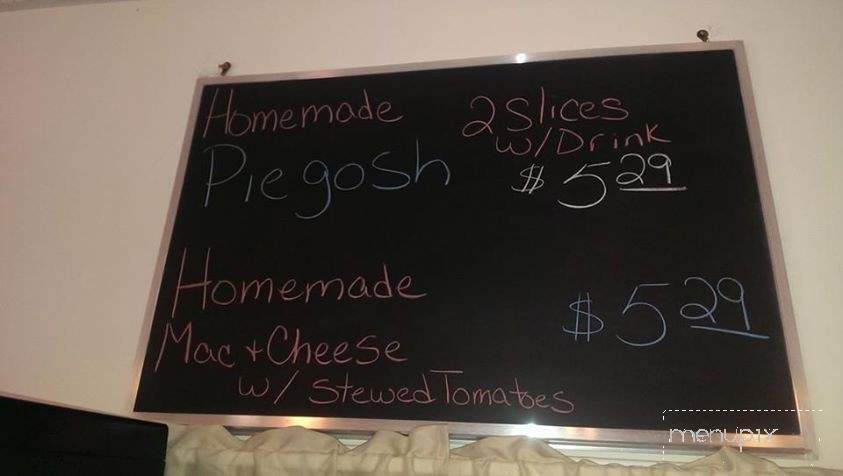 Homemade
Piegosh
2 Slices
w/Drink
$5 29
Homemade
Mac + Cheese
w/ Stewed Tomatoes
$5 29
menupix